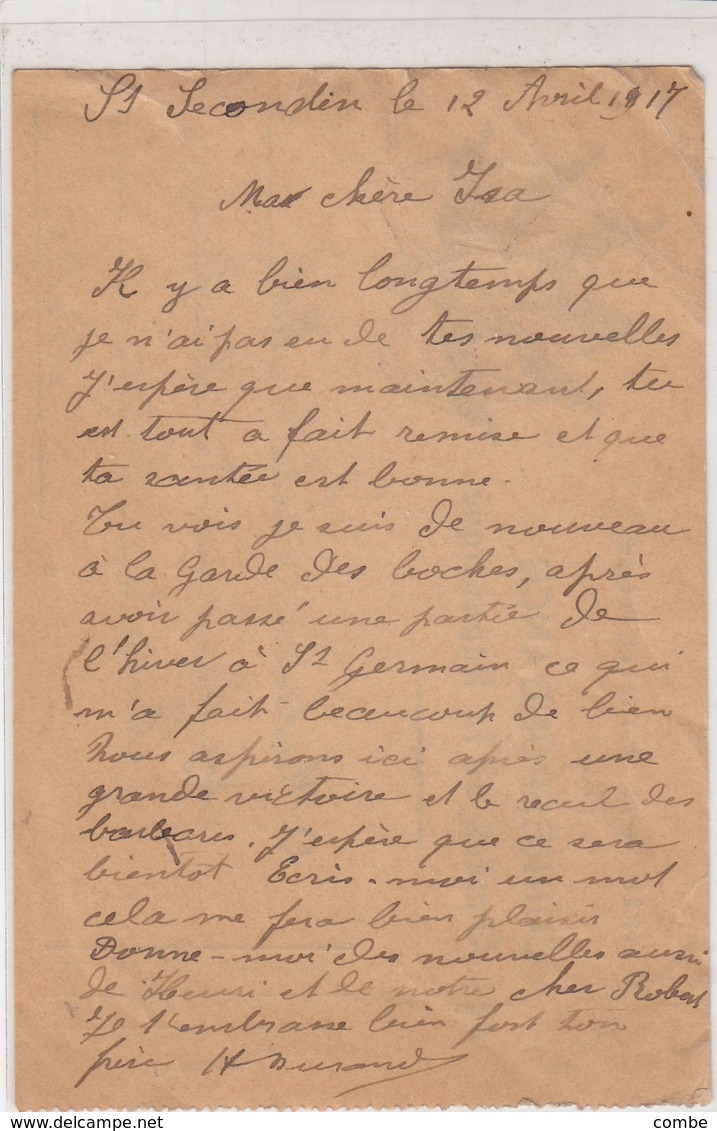 St Secondin le 12 Avril 1917
Ma chère Isa
Il y a bien longtemps que
je n'ai pas eu de tes nouvelles
J'espère que maintenant, tu
est tout a fait remise et que
ta santée est bonne.
Tu vois je suis de nouveau
à la garde des boches, après
avoir passé une partie de
l'hiver à St Germain ce qui
m'a fait beaucoup de bien
Nous aspirons ici après une
grande victoire et le recul des
barbares. J'espère que ce sera
bientot Ecris-moi un mot
cela me fera bien plaisir
Donne-moi des nouvelles aussi
de Henri et de notre cher Robert
Je t'embrasse bien fort ton
père H Durand
www.delcampe.net
combe